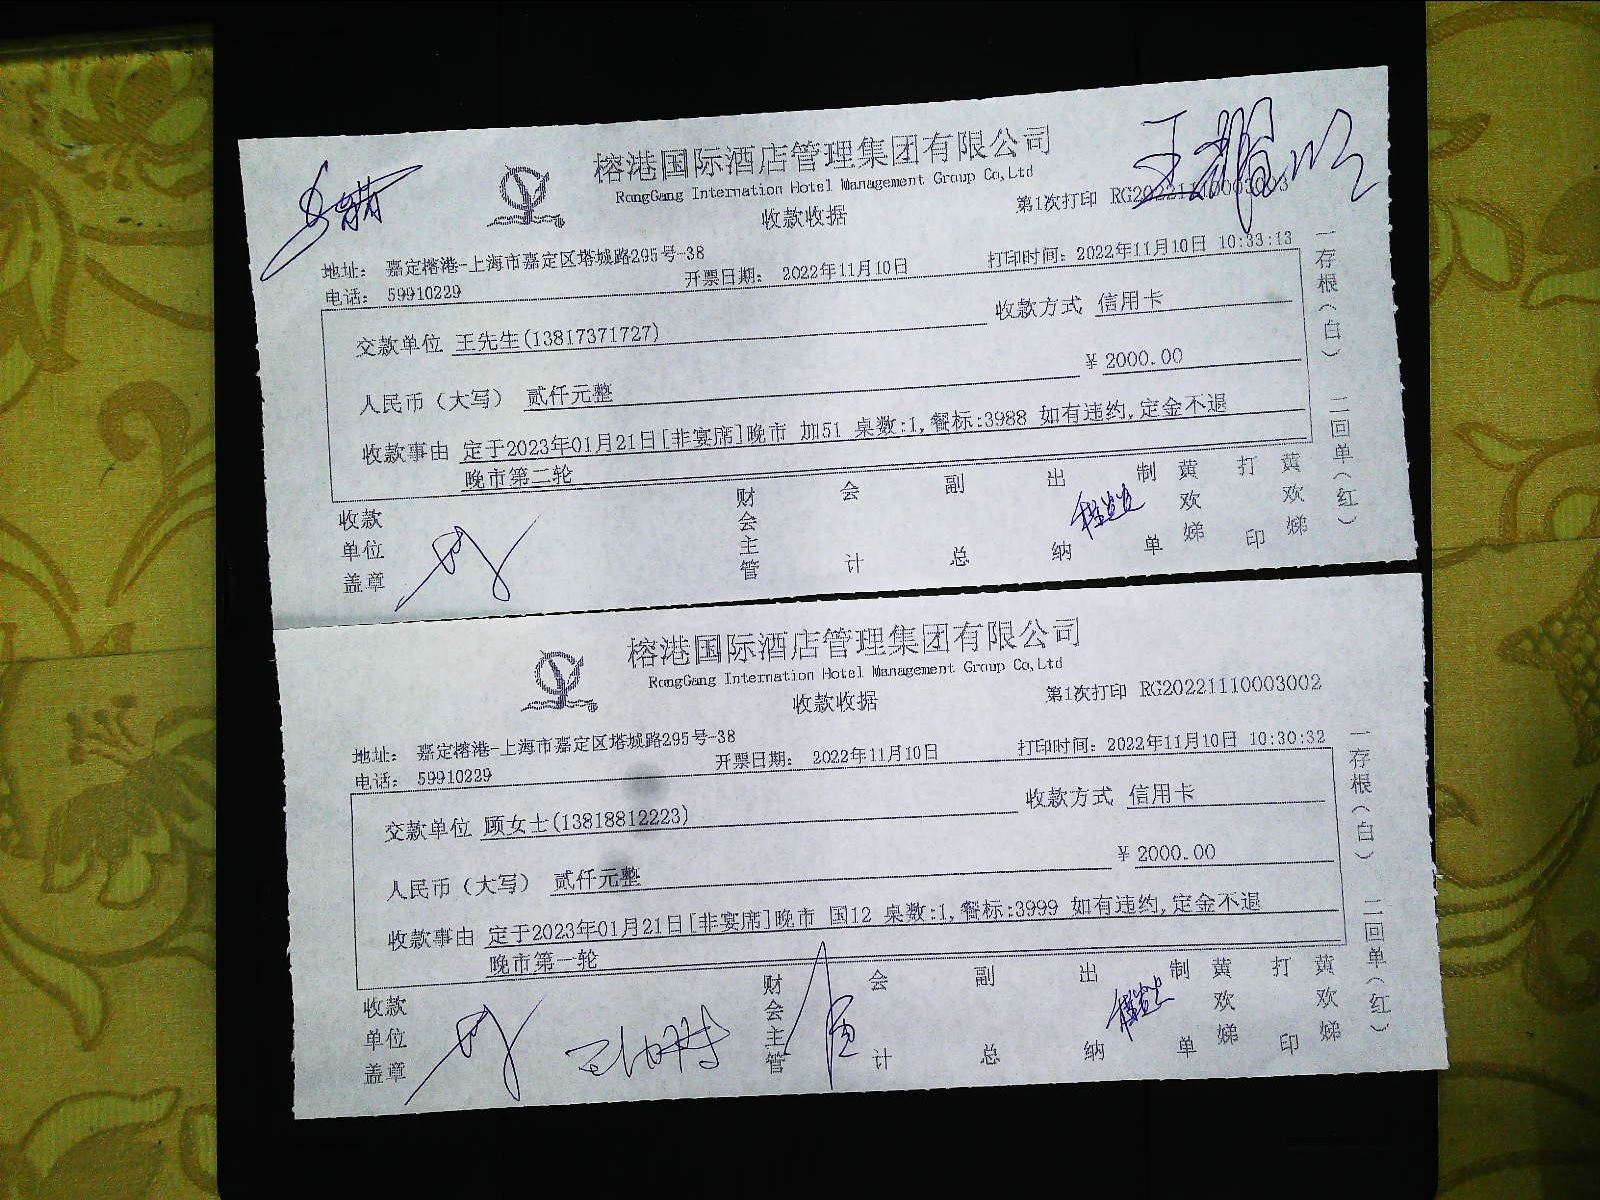 榕港国际酒店管理集团有限公司
RongGang Internation Hotel Management Group Co,Ltd
收款收据
第1次打印
地址： 嘉定榕港-上海市嘉定区塔城路295号-38
电话： 59910229
开票日期： 2022年11月10日
打印时间：2022年11月10日 10:33:13
交款单位 王先生(13817371727)
收款方式 信用卡
人民币（大写） 贰仟元整
¥ 2000.00
收款事由 定于2023年01月21日[非宴席]晚市 加51 桌数:1,餐标:3988 如有违约,定金不退
晚市第二轮
收款单位盖章
财会主管
会计
副总
出纳
制单
黄欢娣
打印
黄欢娣
一存根（白） 二回单（红）
榕港国际酒店管理集团有限公司
RongGang Internation Hotel Management Group Co,Ltd
收款收据
第1次打印 RG20221110003002
地址： 嘉定榕港-上海市嘉定区塔城路295号-38
电话： 59910229
开票日期： 2022年11月10日
打印时间：2022年11月10日 10:30:32
交款单位 顾女士(13818812223)
收款方式 信用卡
人民币（大写） 贰仟元整
¥ 2000.00
收款事由 定于2023年01月21日[非宴席]晚市 国12 桌数:1,餐标:3999 如有违约,定金不退
晚市第一轮
收款单位盖章
财会主管
会计
副总
出纳
制单
黄欢娣
打印
黄欢娣
一存根（白） 二回单（红）